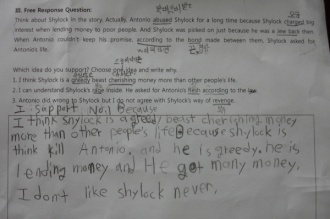 III. Free Response Question:
Think about Shylock in the story. Actually, Antonio abused Shylock for a long time because Shylock charged big
interest when lending money to poor people. And Shylock was picked on just because he was a Jew back then.
When Antonio couldn't keep his promise, according to the bond made between them, Shylock asked for
Antonio's life.
Which idea do you support? Choose one idea and write why.
1. I think Shylock is a greedy beast cherishing money more than other people's life.
2. I can understand Shylock's side. He asked for Antonio's flesh according to the law.
3. Antonio did wrong to Shylock but I do not agree with Shylock's way of revenge.
I support No.1 Because
I think Shylock is a greedy beast cherishing money
more than other people's life Because shylock is
think kill Antonio, and he is greedy. he is
lending money and He get many money.
I don't like shylock never.